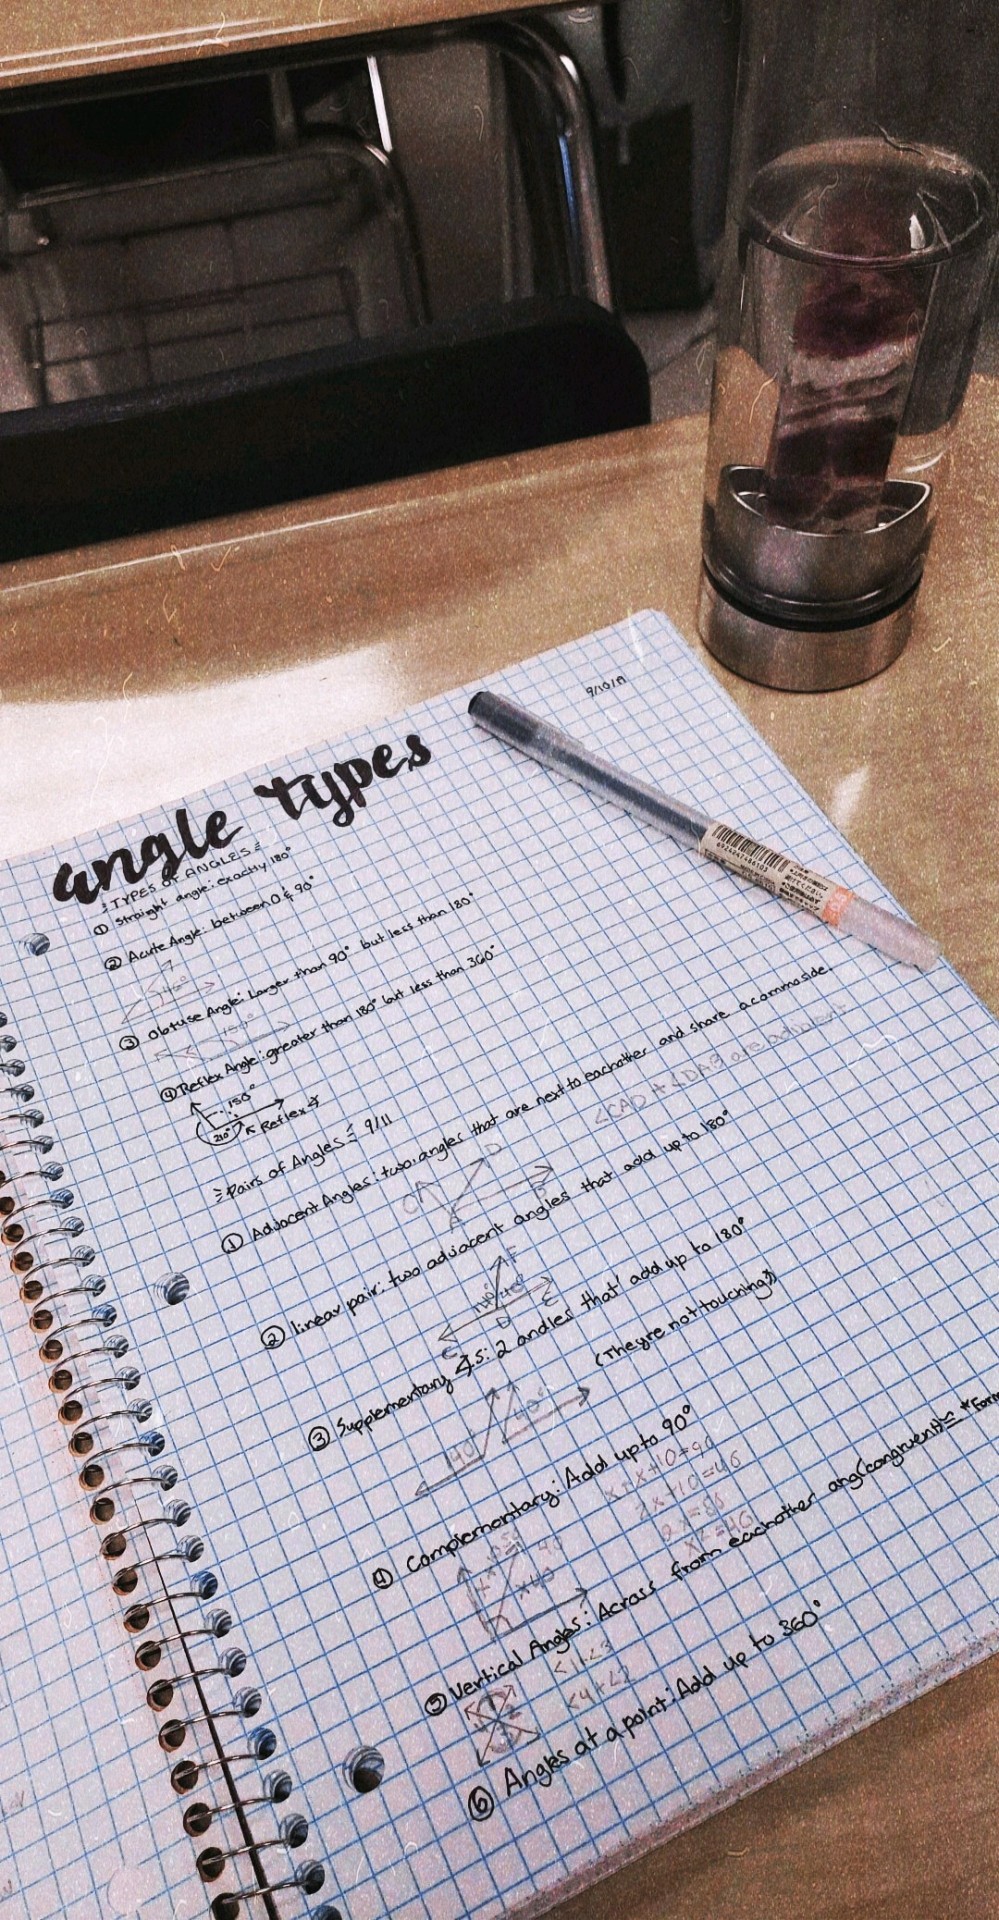 9/10/19
angle types
TYPES OF ANGLES
① Straight angle: exactly 180°
② Acute Angle: between 0 & 90°
45°
③ Obtuse Angle: Larger than 90° but less than 180°
150°
④ Reflex Angle: greater than 180° but less than 360°
150°
210°
Reflex ∡
Pairs of Angles 9/11
① Adjacent Angles: two angles that are next to eachother and share a common side.
<CAD + <DAB are adjacent
C D A B
② linear pair: two adjacent angles that add up to 180°
140° 40°
F E D C
③ Supplementary ∡s: 2 andles that add up to 180°
(Theyre not touching)
140° 40°
④ Complementary: Add up to 90°
x+x+10=90
x+10
⑤ Vertical Angles: Across from eachother ang(congruent) ≅ *Form
<1+<3
<4+<2
⑥ Angles at a point: Add up to 360°
6924047486103